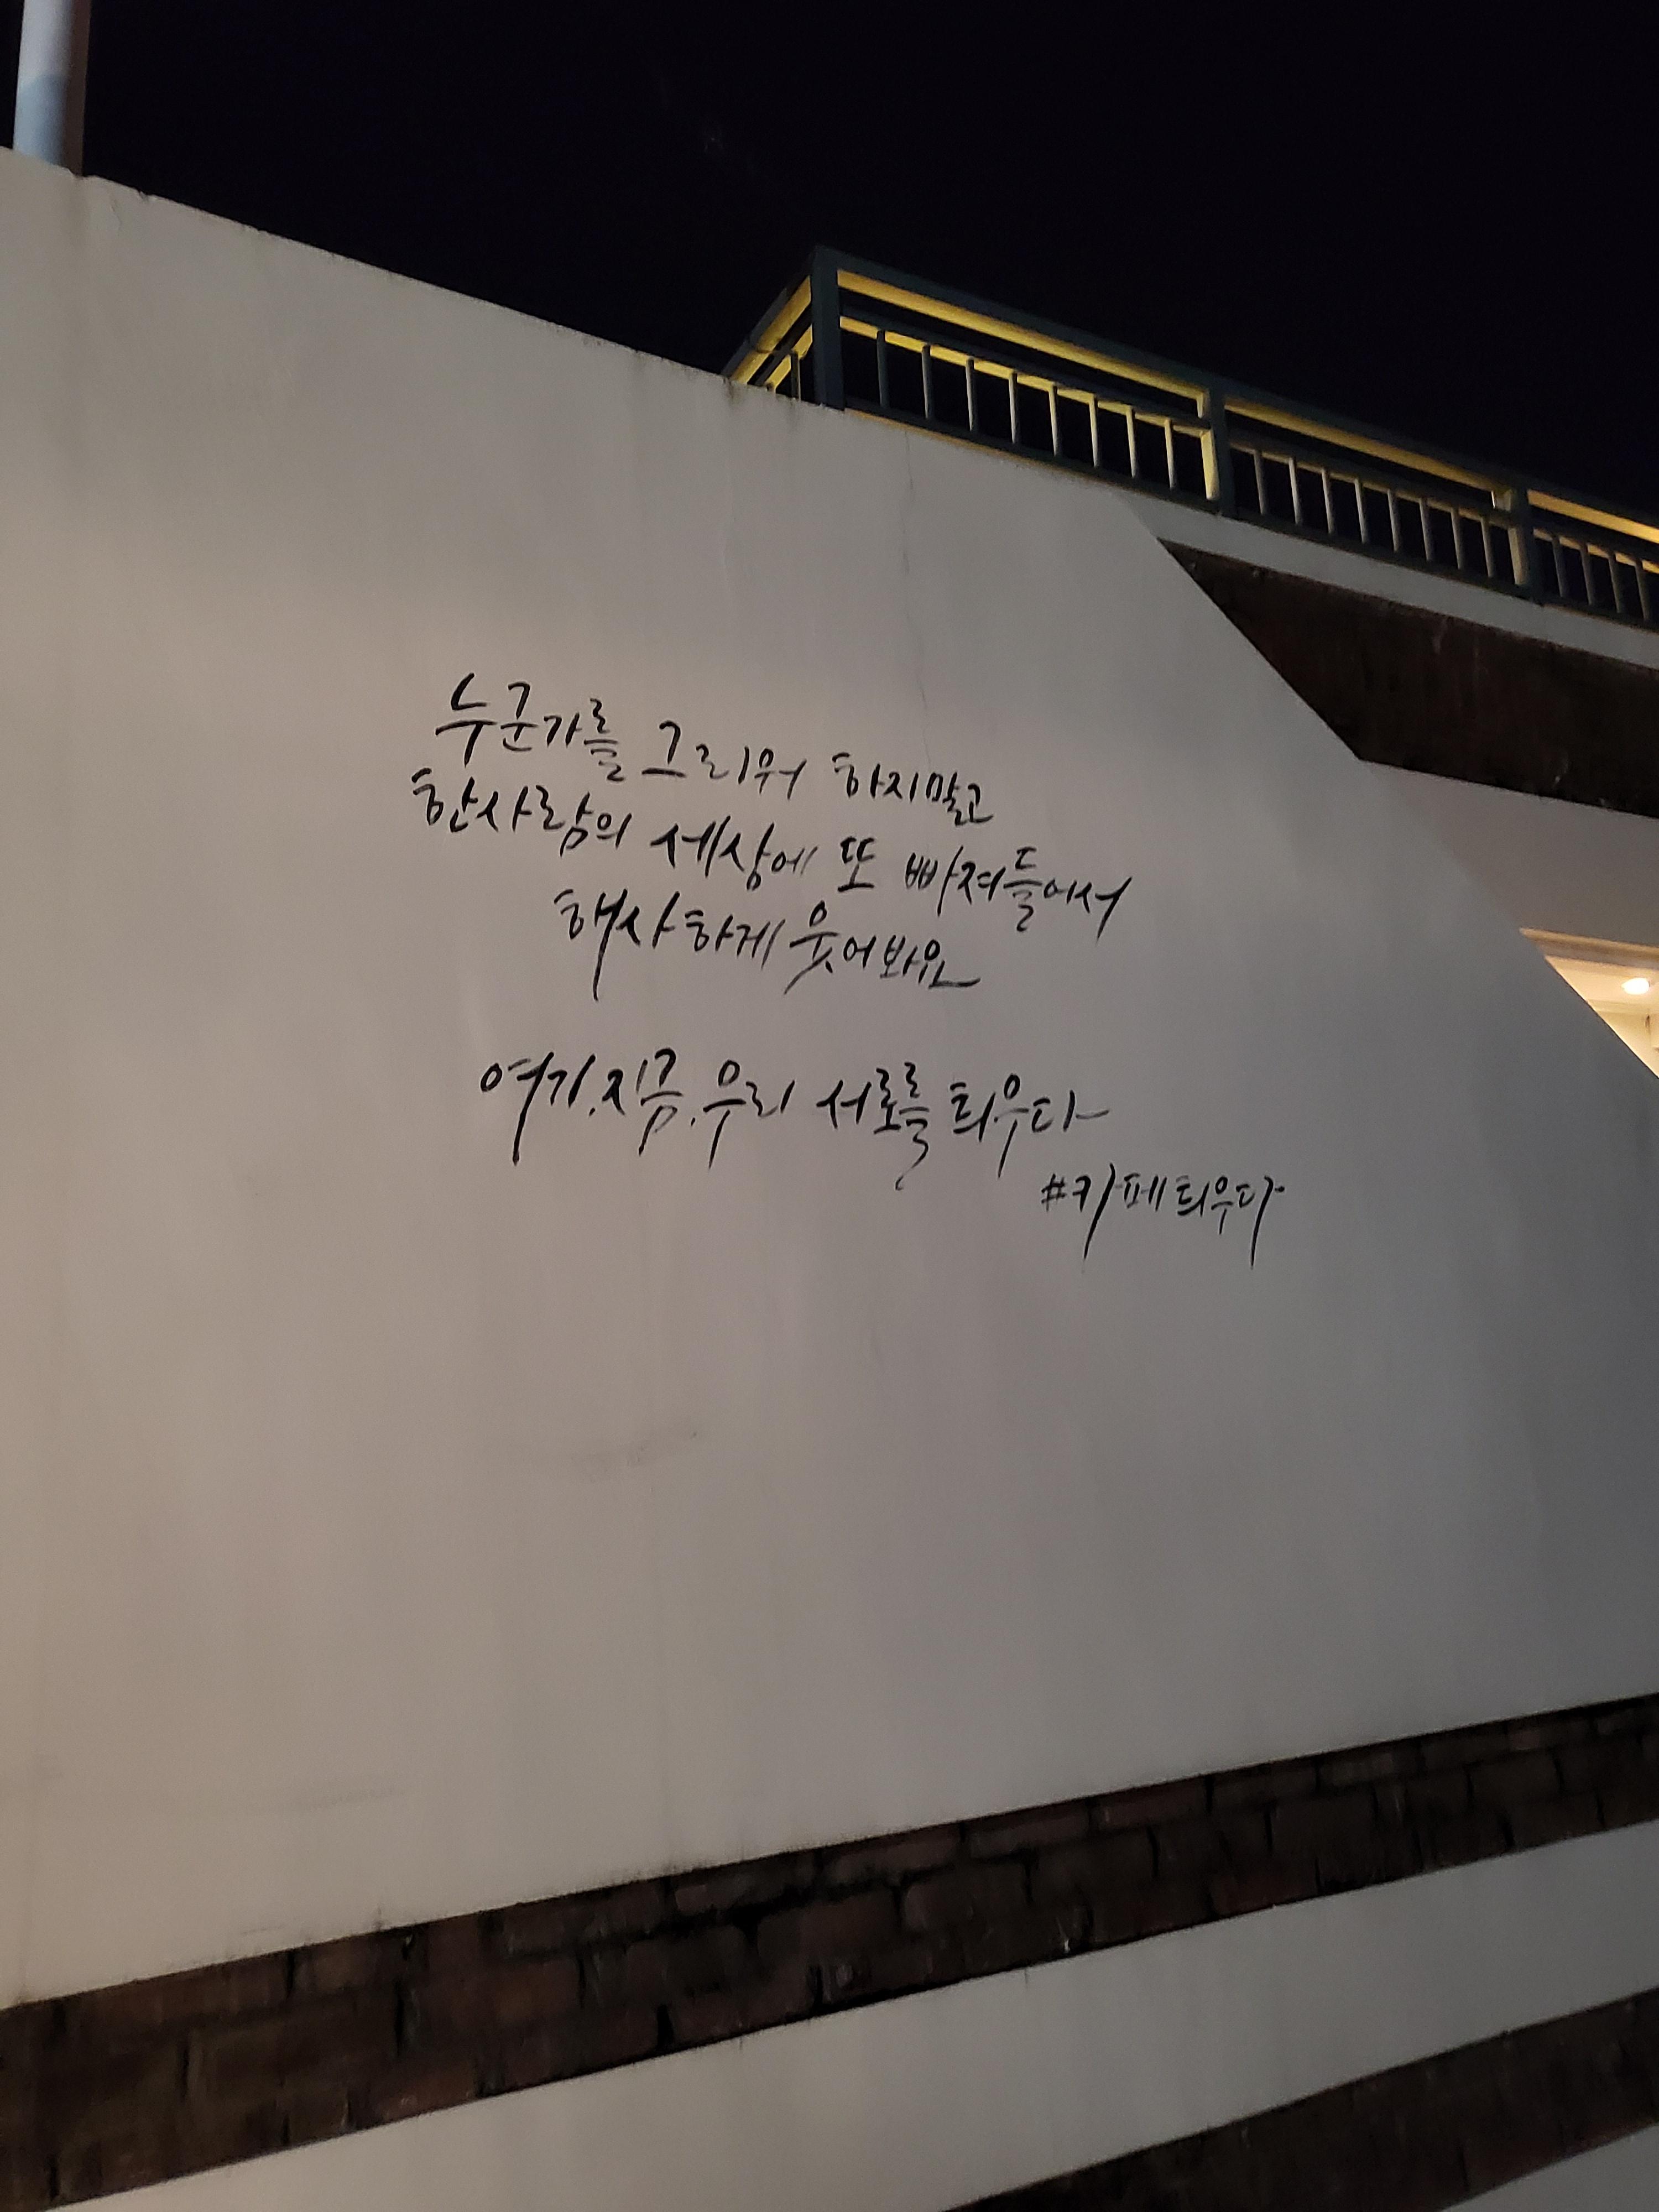 누군가를 그리워 하지말고
한사람의 세상에 또 빠져들어서
해사하게 웃어봐요
여기.지금.우리 서로를 틔우다
#카페틔우다